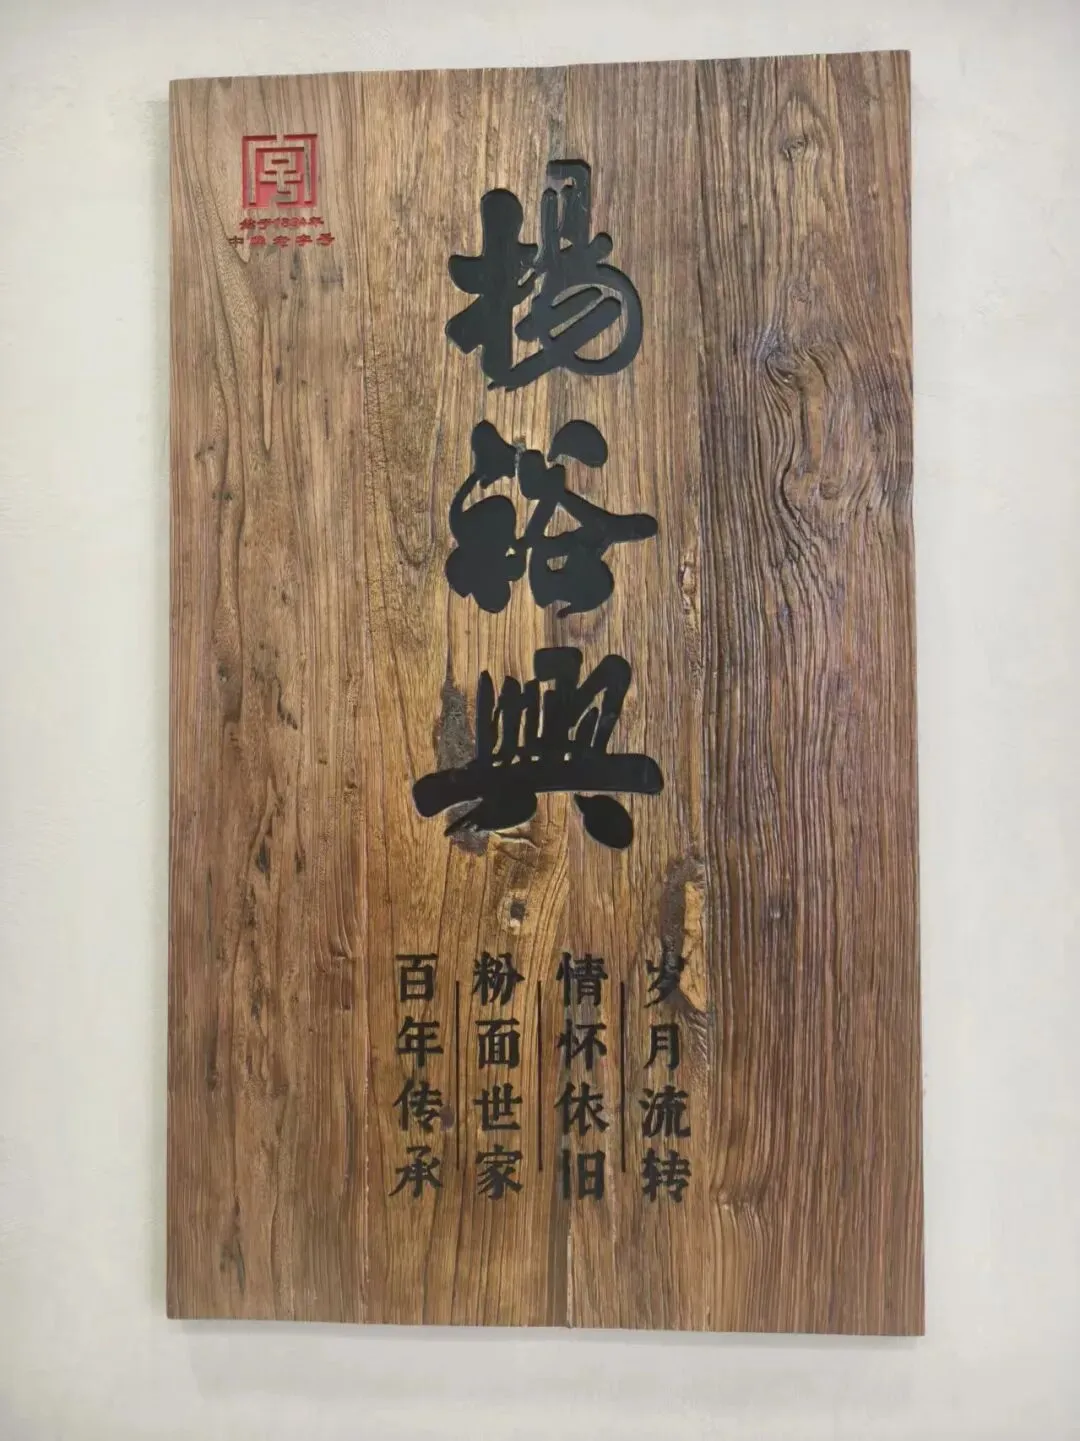 始于1894年
中华老字号
楊裕興
岁月流转
情怀依旧
粉面世家
百年传承